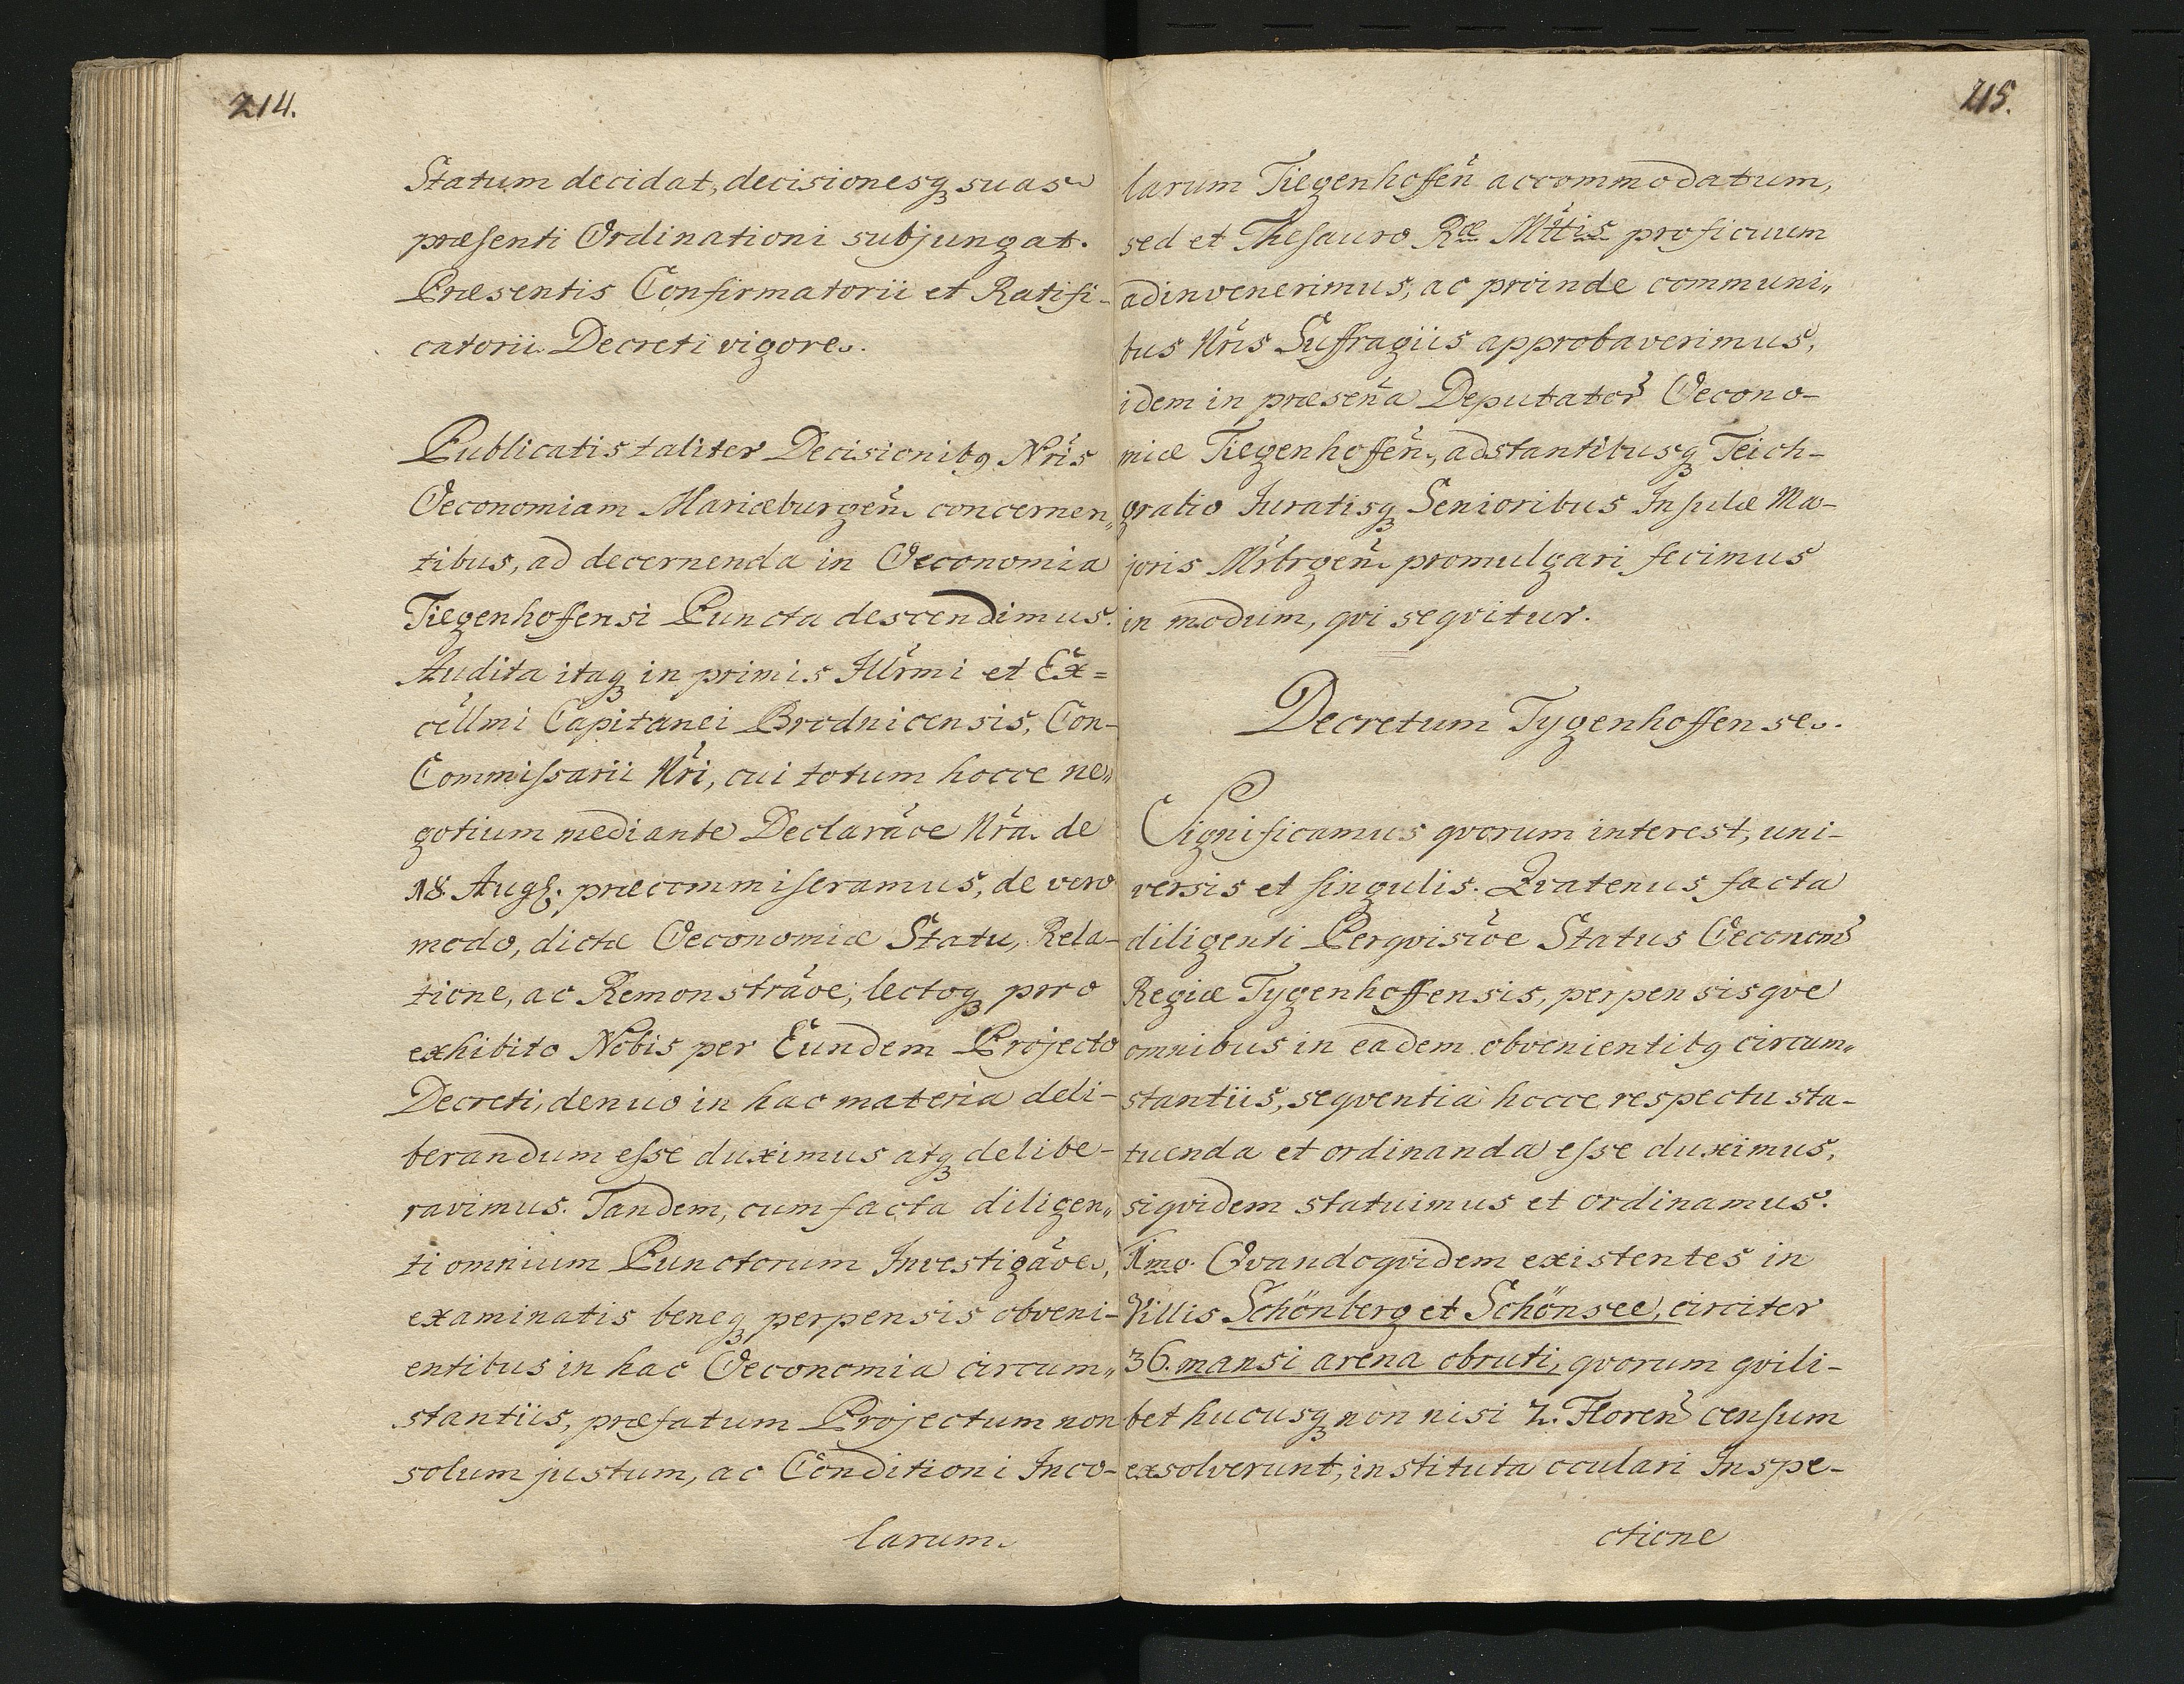 214.
Statum decidat, decisionesq̃ suas
præsenti Ordinationi subjungat.
Præsentis Confirmatorii et Ratifi-
catorii Decreti vigore.
Publicatis taliter Decisionibq Nr̃is
Oeconomiam Mariæburgen̄ concernen„
tibus, ad decernenda in Oeconomia
Tiegenhoffensi Puncta descendimus.
Audita itaq̃ in primis Illr̃mi et Ex=
cell̃mi Capitanei Brodnicensis, Con-
Commissarii Nr̃i, cui totum hocce ne„
gotium mediante Declarãoe Nr̃a de
18 Aug. præcommiseramus, de vero
modo, dictæ Oeconomiæ Statu, Rela-
tione, ac Remonstrãoe, lectoq̃ pro
exhibito Nobis per Eundem Projecto
Decreti, denuo in hac materia deli-
berandum esse duximus atq̃ delibe-
ravimus. Tandem, cum facta diligen„
ti omnium Punctorum Investigãoe,
examinatis beneq̃ perpensis obveni-
entibus in hac Oeconomia circum„
stantiis, præfatum Projectum non
solum justum, ac Conditioni Inco-
larum
215.
larum Tiegenhoffen̄ accommodatum,
sed et Thesauro Ræ Mttis proficuum
adinvenerimus, ac proinde communi„
bus Nr̃is Suffragiis approbaverimus,
idem in præsen̄a Deputator̃ Oecono-
miæ Tiegenhoffen̄, adstantibusq̃ Teich-
gratio Iuratisq̃ Senioribus Insulæ Ma-
joris Mr̃brgen̄ promulgari fecimus
in modum, qvi seqvitur.
Decretum Tygenhoffense.
Significamus qvorum interest, uni-
versis et singulis. Qvatenus facta
diligenti Perqvisiõe Status Oeconom̃
Regiæ Tygenhoffensis, perpensisqve
omnibus in eadem obvenientibq circum„
stantiis, seqventia hocce respectu sta-
tuenda et ordinanda esse duximus,
siqvidem statuimus et ordinamus.
1mo. Qvandoqvidem existentes in
Villis Schönberg et Schönsee, circiter
36. mansi arena obruti, qvorum qvili-
bet hucusq̃ non nisi 7. Floren̄ censum
exsolverunt, instituta oculari Inspe-
ctione